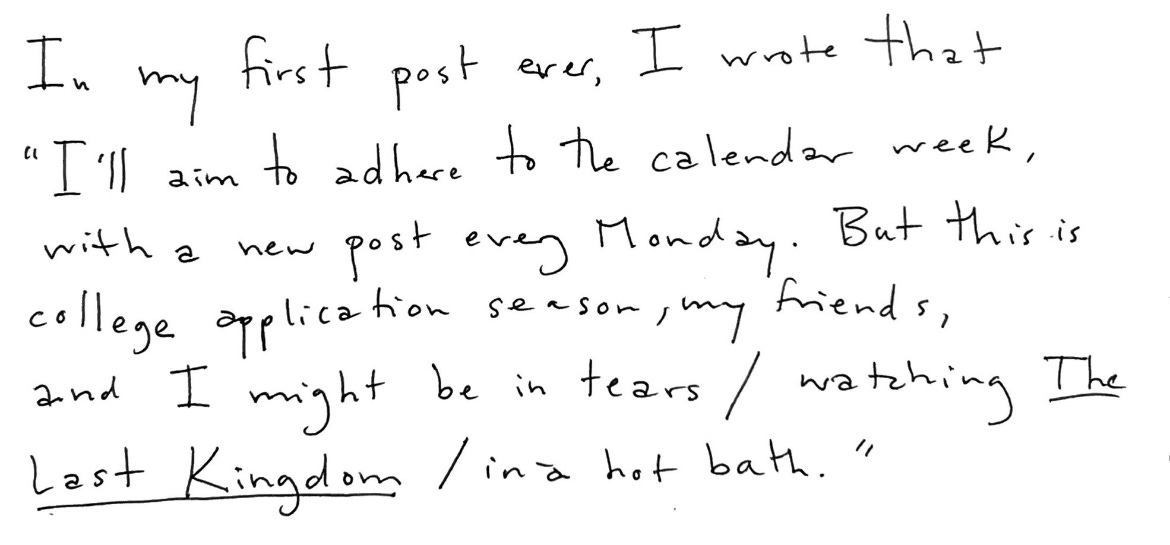 In my first post ever, I wrote that
"I'll aim to adhere to the calendar week,
with a new post every Monday. But this is
college application season, my friends,
and I might be in tears / watching The
Last Kingdom / in a hot bath."